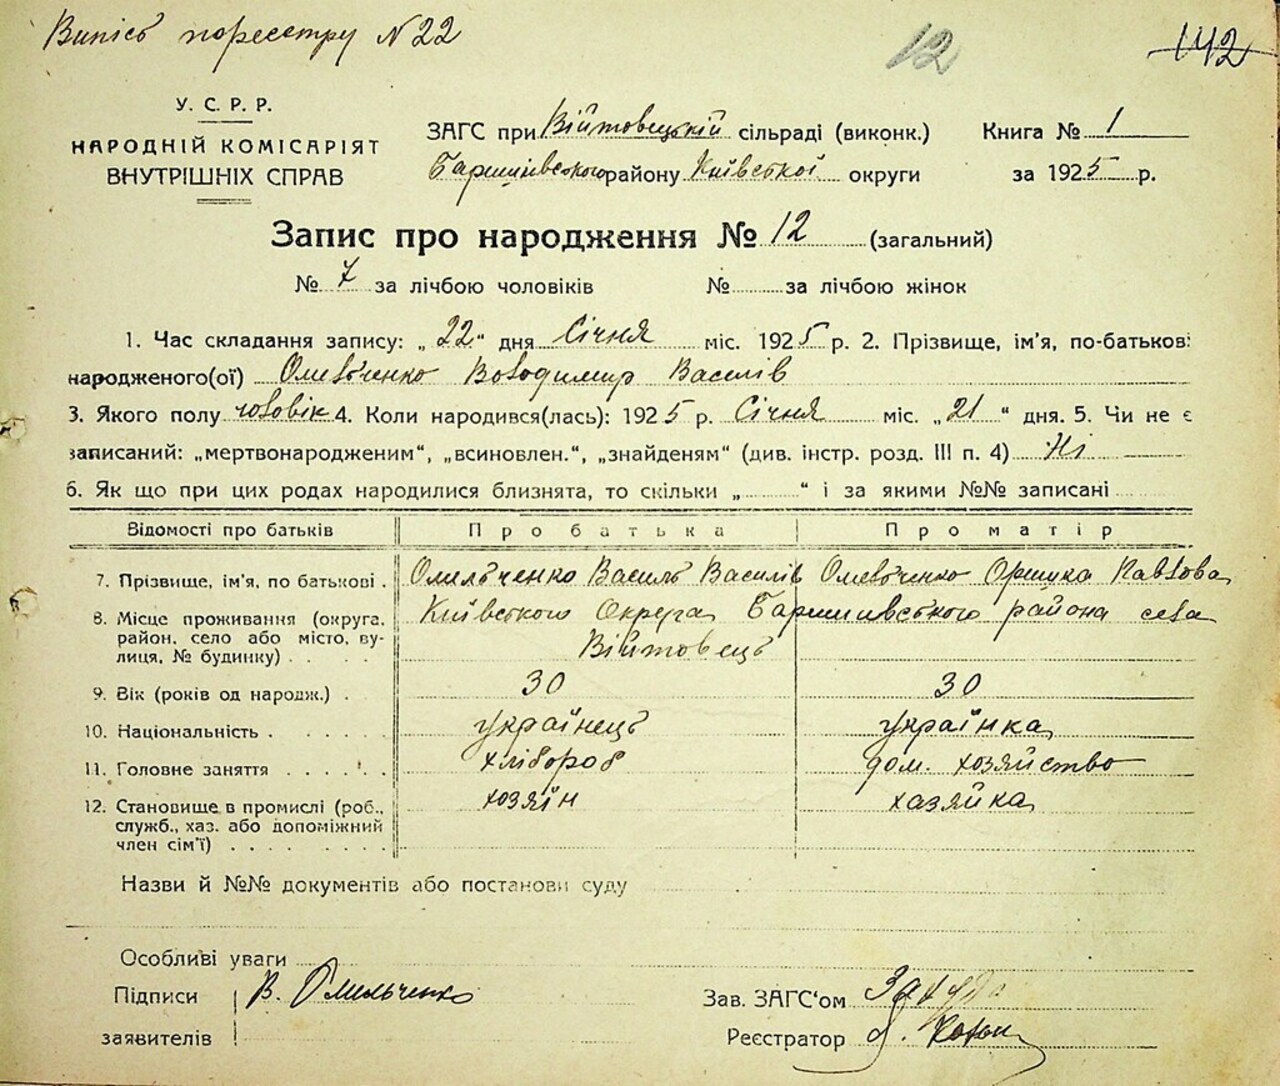 Випісь пореестру N 22
12
142
У. С. Р. Р.
НАРОДНІЙ КОМІСАРІЯТ
ВНУТРІШНІХ СПРАВ
ЗАГС при Війтовецькій сільраді (виконк.)
Баришівського району Київської округи
Книга № 1
за 1925 р.
Запис про народження № 12 (загальний)
№ 7 за лічбою чоловіків № за лічбою жінок
1. Час складання запису: „22“ дня Січня міс. 1925 р. 2. Прізвище, ім'я, по-батьков:
народженого(ої) Омельченко Володимир Василів
3. Якого полу чоловік 4. Коли народився(лась): 1925 р. Січня міс. „21“ дня. 5. Чи не є
записаний: „мертвонародженим“, „всиновлен.“, „знайденям“ (див. інстр. розд. III п. 4) Ні
6. Як що при цих родах народилися близнята, то скільки „ “ і за якими №№ записані
Відомості про батьків Про батька Про матір
7. Прізвище, ім'я, по батькові . Омельченко Василь Василів Омельченко Оришка Павлова
8. Місце проживання (округа, Київського Округа Баришивського района села
район, село або місто, ву- Війтовець
лиця, № будинку) . . . .
9. Вік (років од народж.) . 30 30
10. Національність . . . . . . українець українка
11. Головне заняття . . . . . хлібороб дом. хозяйство
12. Становище в промислі (роб., хозяїн хазяйка
служб., хаз. або допоміжний
член сім'ї) . . . . . . . .
Назви й №№ документів або постанови суду
Особливі уваги
Підписи В. Омельченко
заявителів
Зав. ЗАГС'ом
Реєстратор